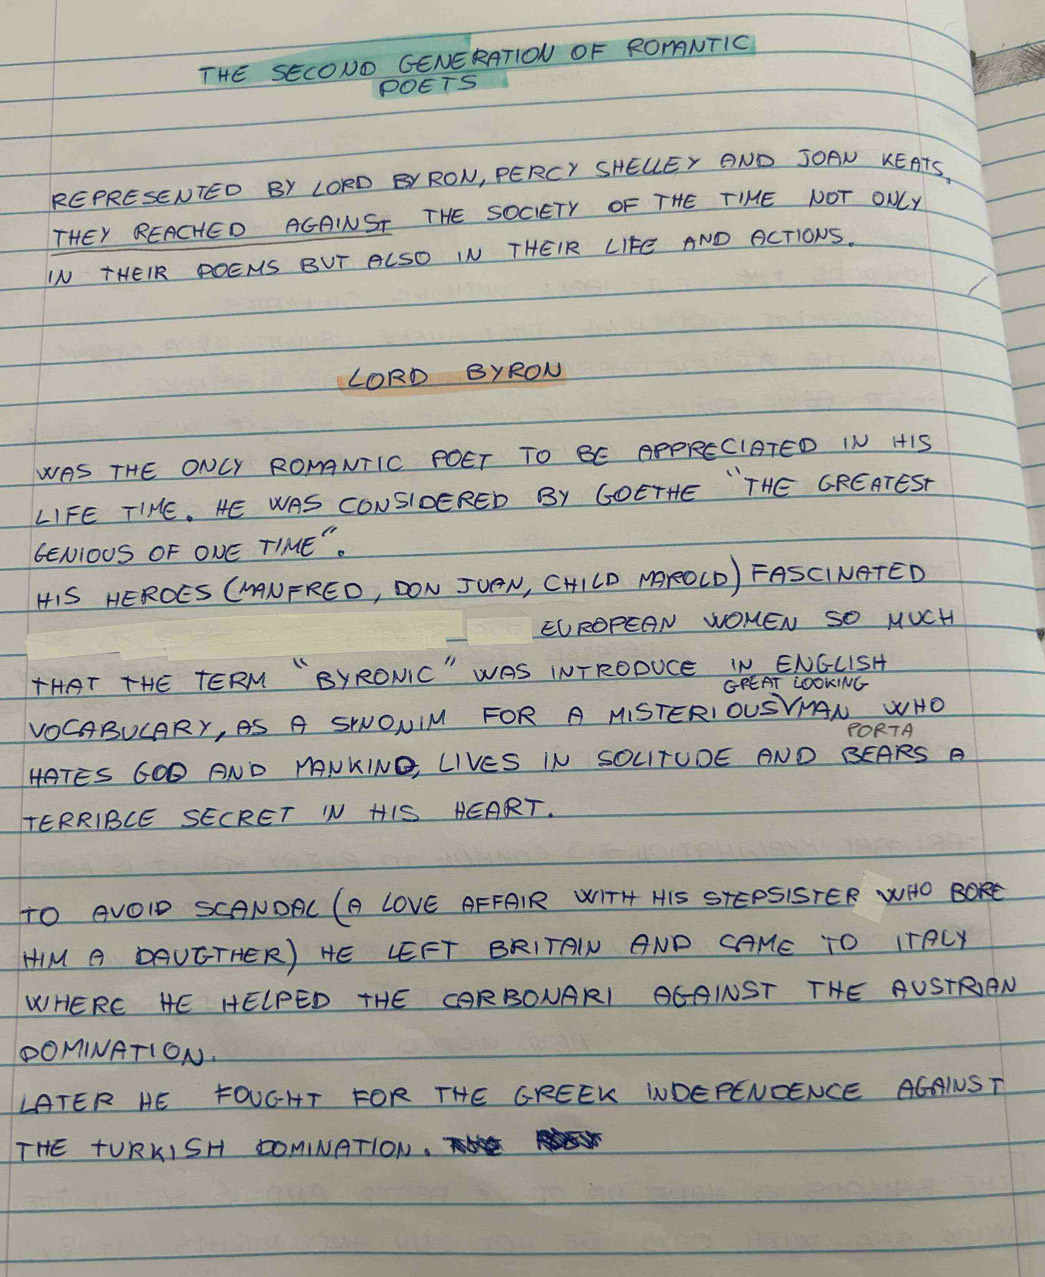 THE SECOND GENERATION OF ROMANTIC
POETS
REPRESENTED BY LORD BYRON, PERCY SHELLEY AND JOAN KEATS.
THEY REACHED AGAINST THE SOCIETY OF THE TIME NOT ONLY
IN THEIR POEMS BUT ALSO IN THEIR LIFE AND ACTIONS.
LORD BYRON
WAS THE ONLY ROMANTIC POET TO BE APPRECIATED IN HIS
LIFE TIME. HE WAS CONSIDERED BY GOETHE "THE GREATEST
GENIOUS OF ONE TIME".
HIS HEROES (MANFRED, DON JUAN, CHILD MAROLD) FASCINATED
EUROPEAN WOMEN SO MUCH
THAT THE TERM "BYRONIC" WAS INTRODUCE IN ENGLISH
GREAT LOOKING
VOCABULARY, AS A SINONIM FOR A MISTERIOUS MAN WHO
PORTA
HATES GOD AND MANKIND, LIVES IN SOLITUDE AND BEARS A
TERRIBLE SECRET IN HIS HEART.
TO AVOID SCANDAL (A LOVE AFFAIR WITH HIS STEPSISTER WHO BORE
HIM A DAUGTHER) HE LEFT BRITAIN AND CAME TO ITALY
WHERE HE HELPED THE CARBONARI AGAINST THE AUSTRIAN
DOMINATION.
LATER HE FOUGHT FOR THE GREEK INDEPENDENCE AGAINST
THE TURKISH DOMINATION.